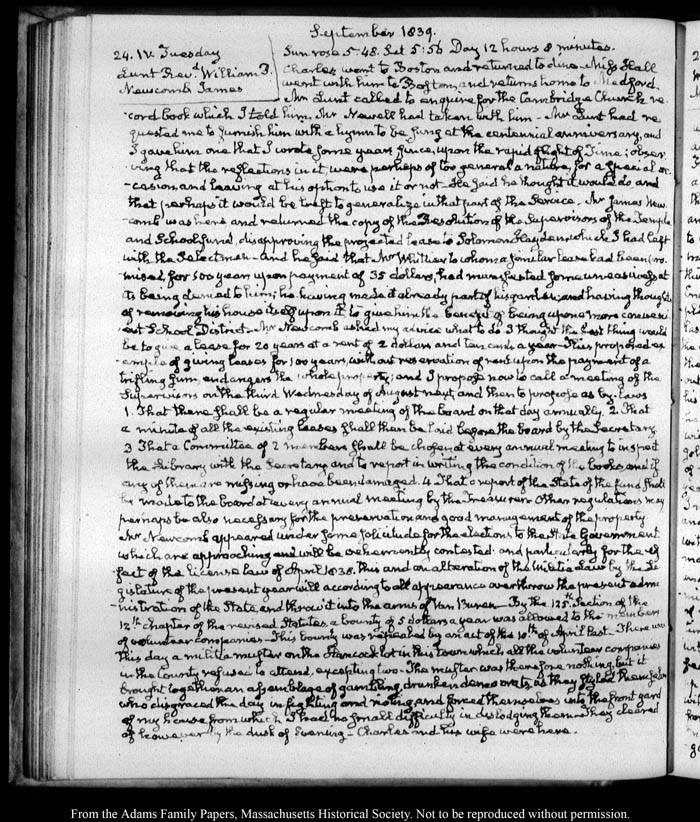 September 1839.
24. IV. Tuesday
Lunt Revd. William P.
Newcomb James
Sun rose 5-48. Set 5:56 Day 12 hours 8 minutes.
Charles went to Boston and returned to dine. Miss Hall
went with him to Boston, and returns home to Medford.
Mr Lunt called to enquire for the Cambridge Church re-
cord book which I told him Mr Newell had taken with him - Mr Lunt had re-
quested me to furnish him with a hymn to be sung at the centennial anniversary, and
I gave him one that I wrote some years since, upon the rapid flight of Time; obser-
ving that the reflections in it were perhaps of too general a nature, for a special oc-
-casion and leaving at his option to use it or not - He said he thought it would do and
that perhaps it would be best to generalize in that part of the Service. Mr James New-
-comb was here and returned the copy of the Resolution of the Supervisors of the Temple
and School fund, disapproving the projected lease to Solomon Hayden, which I had left
with the Selectmen - and he said that Mr Whittier to whom a similar lease had been pro-
mised, for 500 years upon payment of 35 dollars, had manifested some uneasiness at
its being denied to him; he having made it already part of his garden, and having thoughts
of removing his house itself upon it to give him the benefit of being upon a more conveni-
ent School District - Mr Newcomb asked my advice what to do I thought the best thing would
be to give a lease for 20 years at a rent of 2 dollars and ten cents a year - This proposed ex-
-ample of giving leases for 500 years, without reservation of rent upon the payment of a
trifling sum, endangers the whole property; and I propose now to call a meeting of the
Supervisors on the third Wednesday of August next, and then to propose as by-laws
1. That there shall be a regular meeting of the board on that day annually. 2. That
a minute of all the existing leases shall then be laid before the board by the Secretary
3 That a Committee of 2 members shall be chosen at every annual meeting to inspect
the Library with the Secretary and to report in writing the condition of the books, and if
any of them are missing or have been damaged. 4. That a report of the State of the fund shall
be made to the board at every annual meeting by the Treasurer. Other regulations may
perhaps be also necessary for the preservation and good management of the property.
Mr Newcomb appeared under some solicitude for the elections to the State Government
which are approaching and will be vehemently contested - and particularly for the ef-
fect of the license law of April 1838. This and an alteration of the Militia Law by the Le-
gislature of the present year will according to all appearance overthrow the present admi-
nistration of the State, and throw it into the arms of Van Buren - By the 125th Section of the
12th chapter of the revised Statutes, a bounty of 5 dollars a year was allowed to the members
of volunteer companies - This bounty was repealed by an act of the 10th of April last. There was
this day a militia muster on the Hancock lot in this town which all the volunteer companies
in the County refused to attend, excepting two - The muster was therefore nothing, but it
brought together an assemblage of gambling, drunken democrats, as they styled themselves
who disgraced the day in fighting and rioting, and forced themselves into the front yard
of my house from which I had no small difficulty in dislodging them. They cleared
off however by the dusk of Evening - Charles and his wife were here.
From the Adams Family Papers, Massachusetts Historical Society. Not to be reproduced without permission.